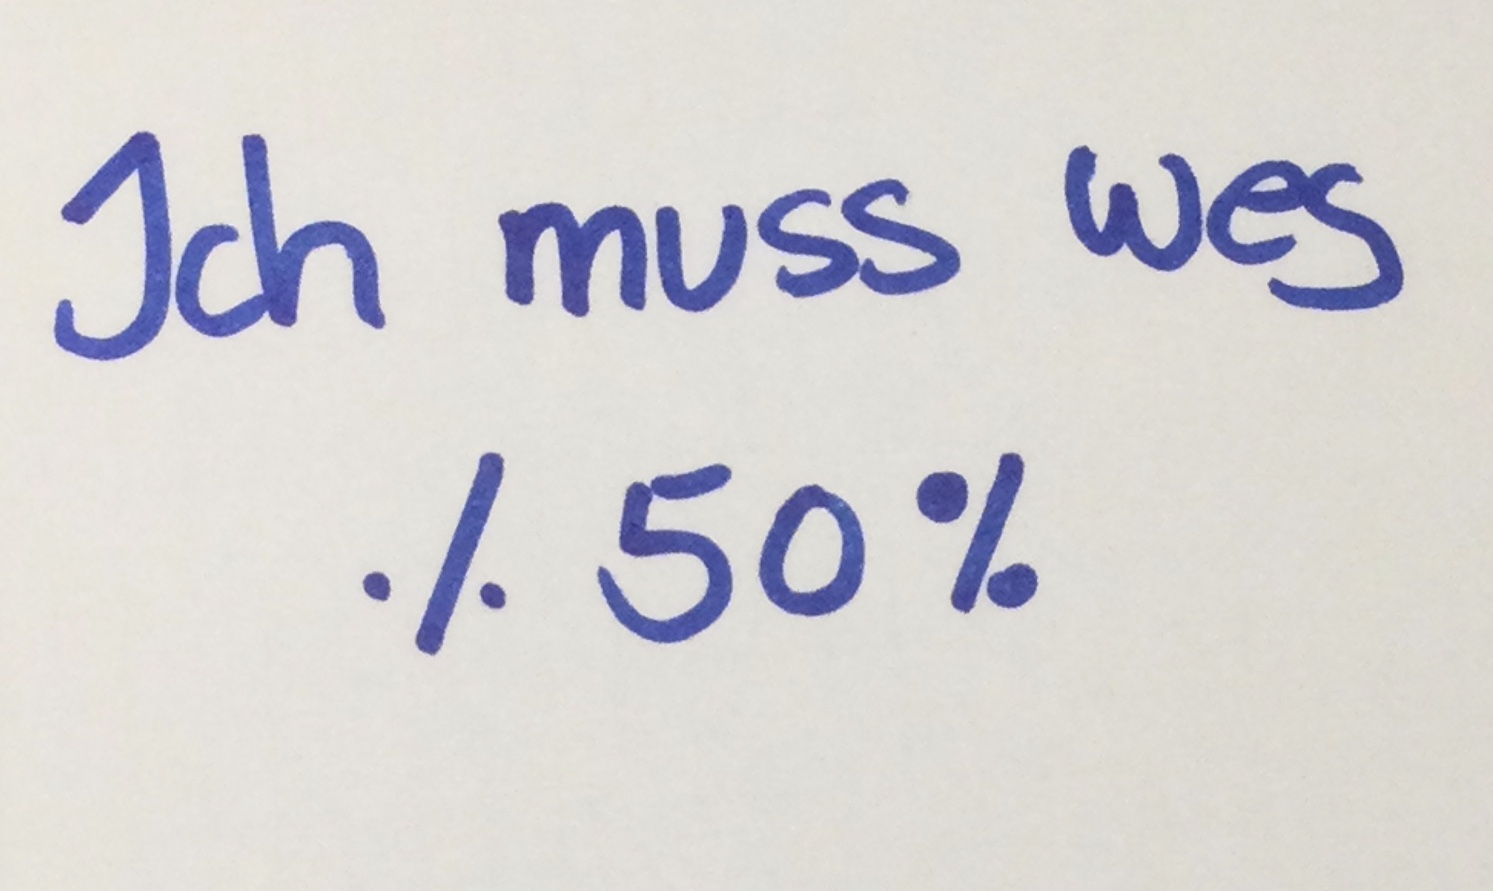 Ich muss weg
./. 50%